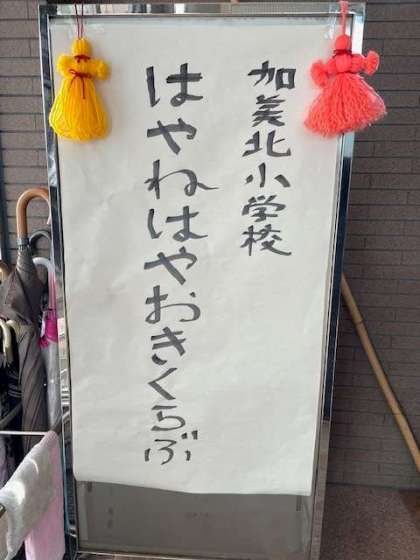 加美北小学校
はやねはやおきくらぶ